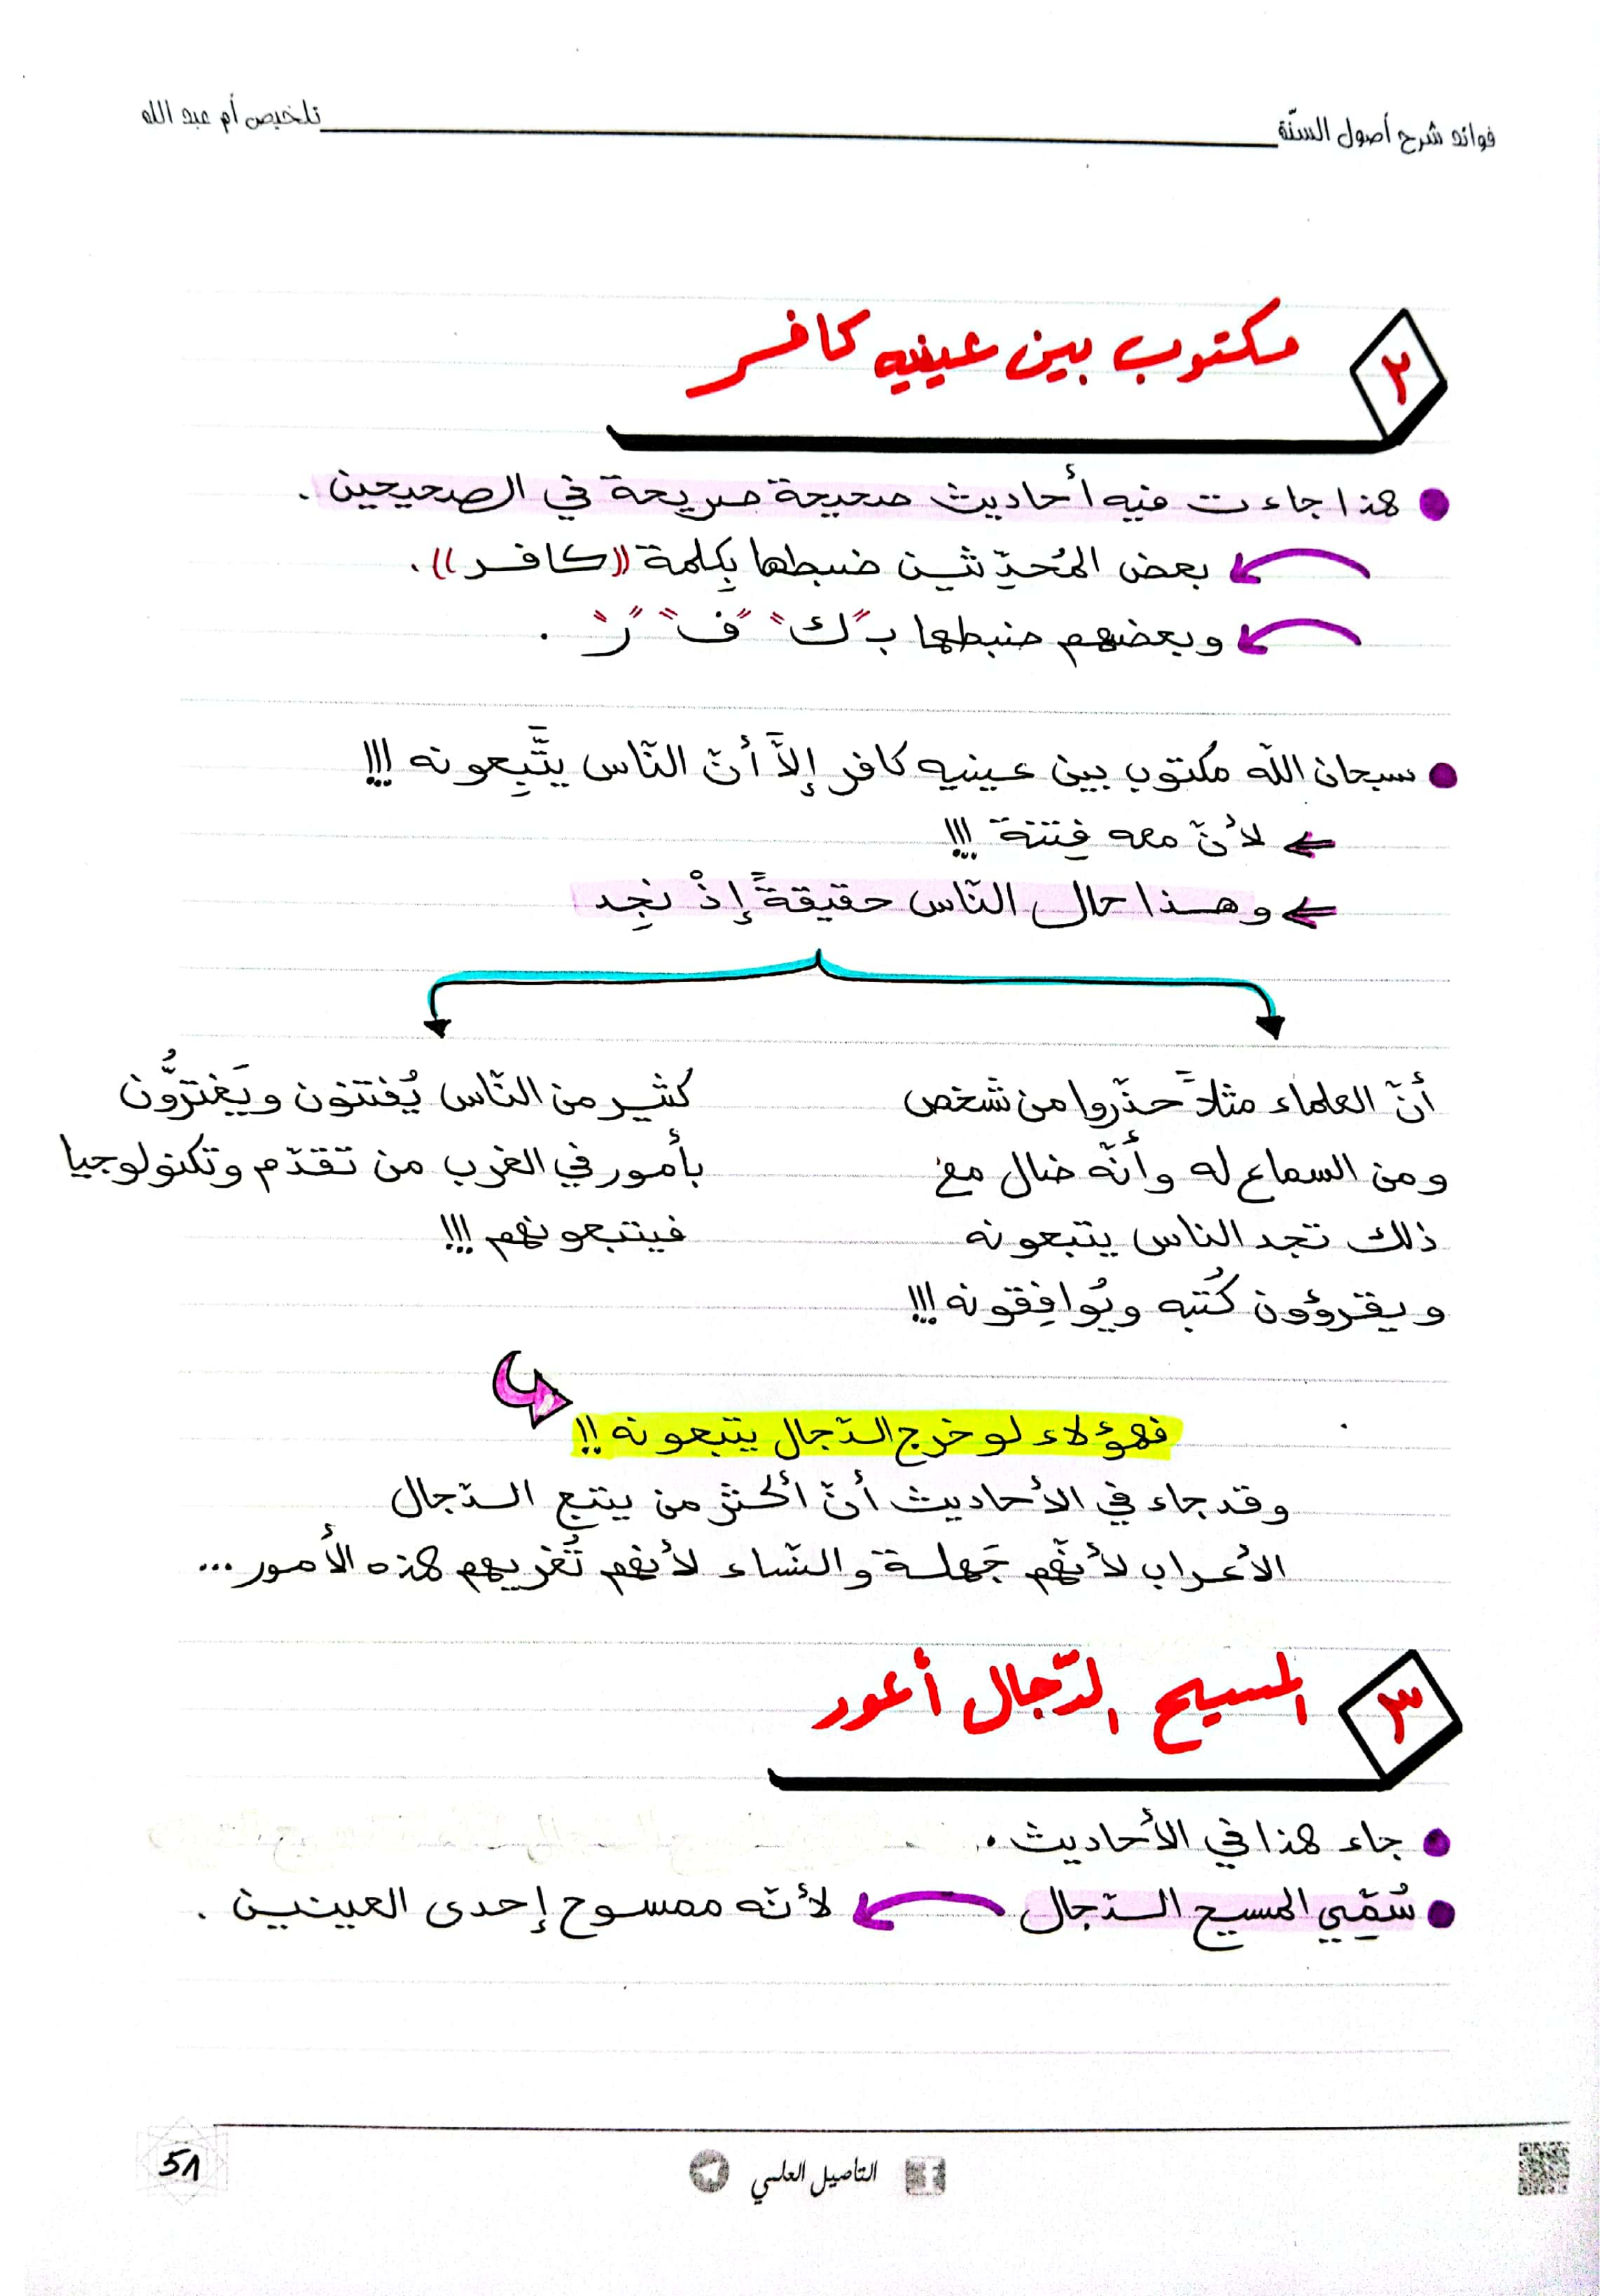 فوائد شرح أصول السنّة
تلخيص أم عبد الله
٢
مكتوب بين عينيه كافر
هذا جاءت فيه أحاديث صحيحة صريحة في الصحيحين .
بعض المُحدِّثين ضبطها بِكلمة ((كافر)).
وبعضهم ضبطها بـ "ك" "ف" "ر" .
سبحان اللّه مكتوب بين عينيه كافر إلاَّ أنّ النّاس يتَّبِعونه !!!
لأنّ معه فِتنة !!!
وهذا حال النّاس حقيقةً إذْ نجِد
أنّ العلماء مثلاً حذّروا من شخص
ومن السماع له وأنّه ضال مع
ذلك تجد الناس يتبعونه
ويقرؤون كُتبه ويُوافِقونه !!!
كثير من النّاس يُفتنون ويَغترُّون
بأمور في الغرب من تقدّم وتكنولوجيا
فيتبعونهم !!!
فهؤلاء لو خرج الدّجال يتبعونه !!
وقد جاء في الأحاديث أنّ أكثر من يتبع الدّجال
الأعراب لأنّهم جَهلة والنّساء لأنهم تُغريهم هذه الأمور ...
٣
المسيح الدّجال أعور
جاء هذا في الأحاديث .
سُمِّي المسيح الدّجال لأنّه ممسوح إحدى العينين .
التاصيل العلمي
51